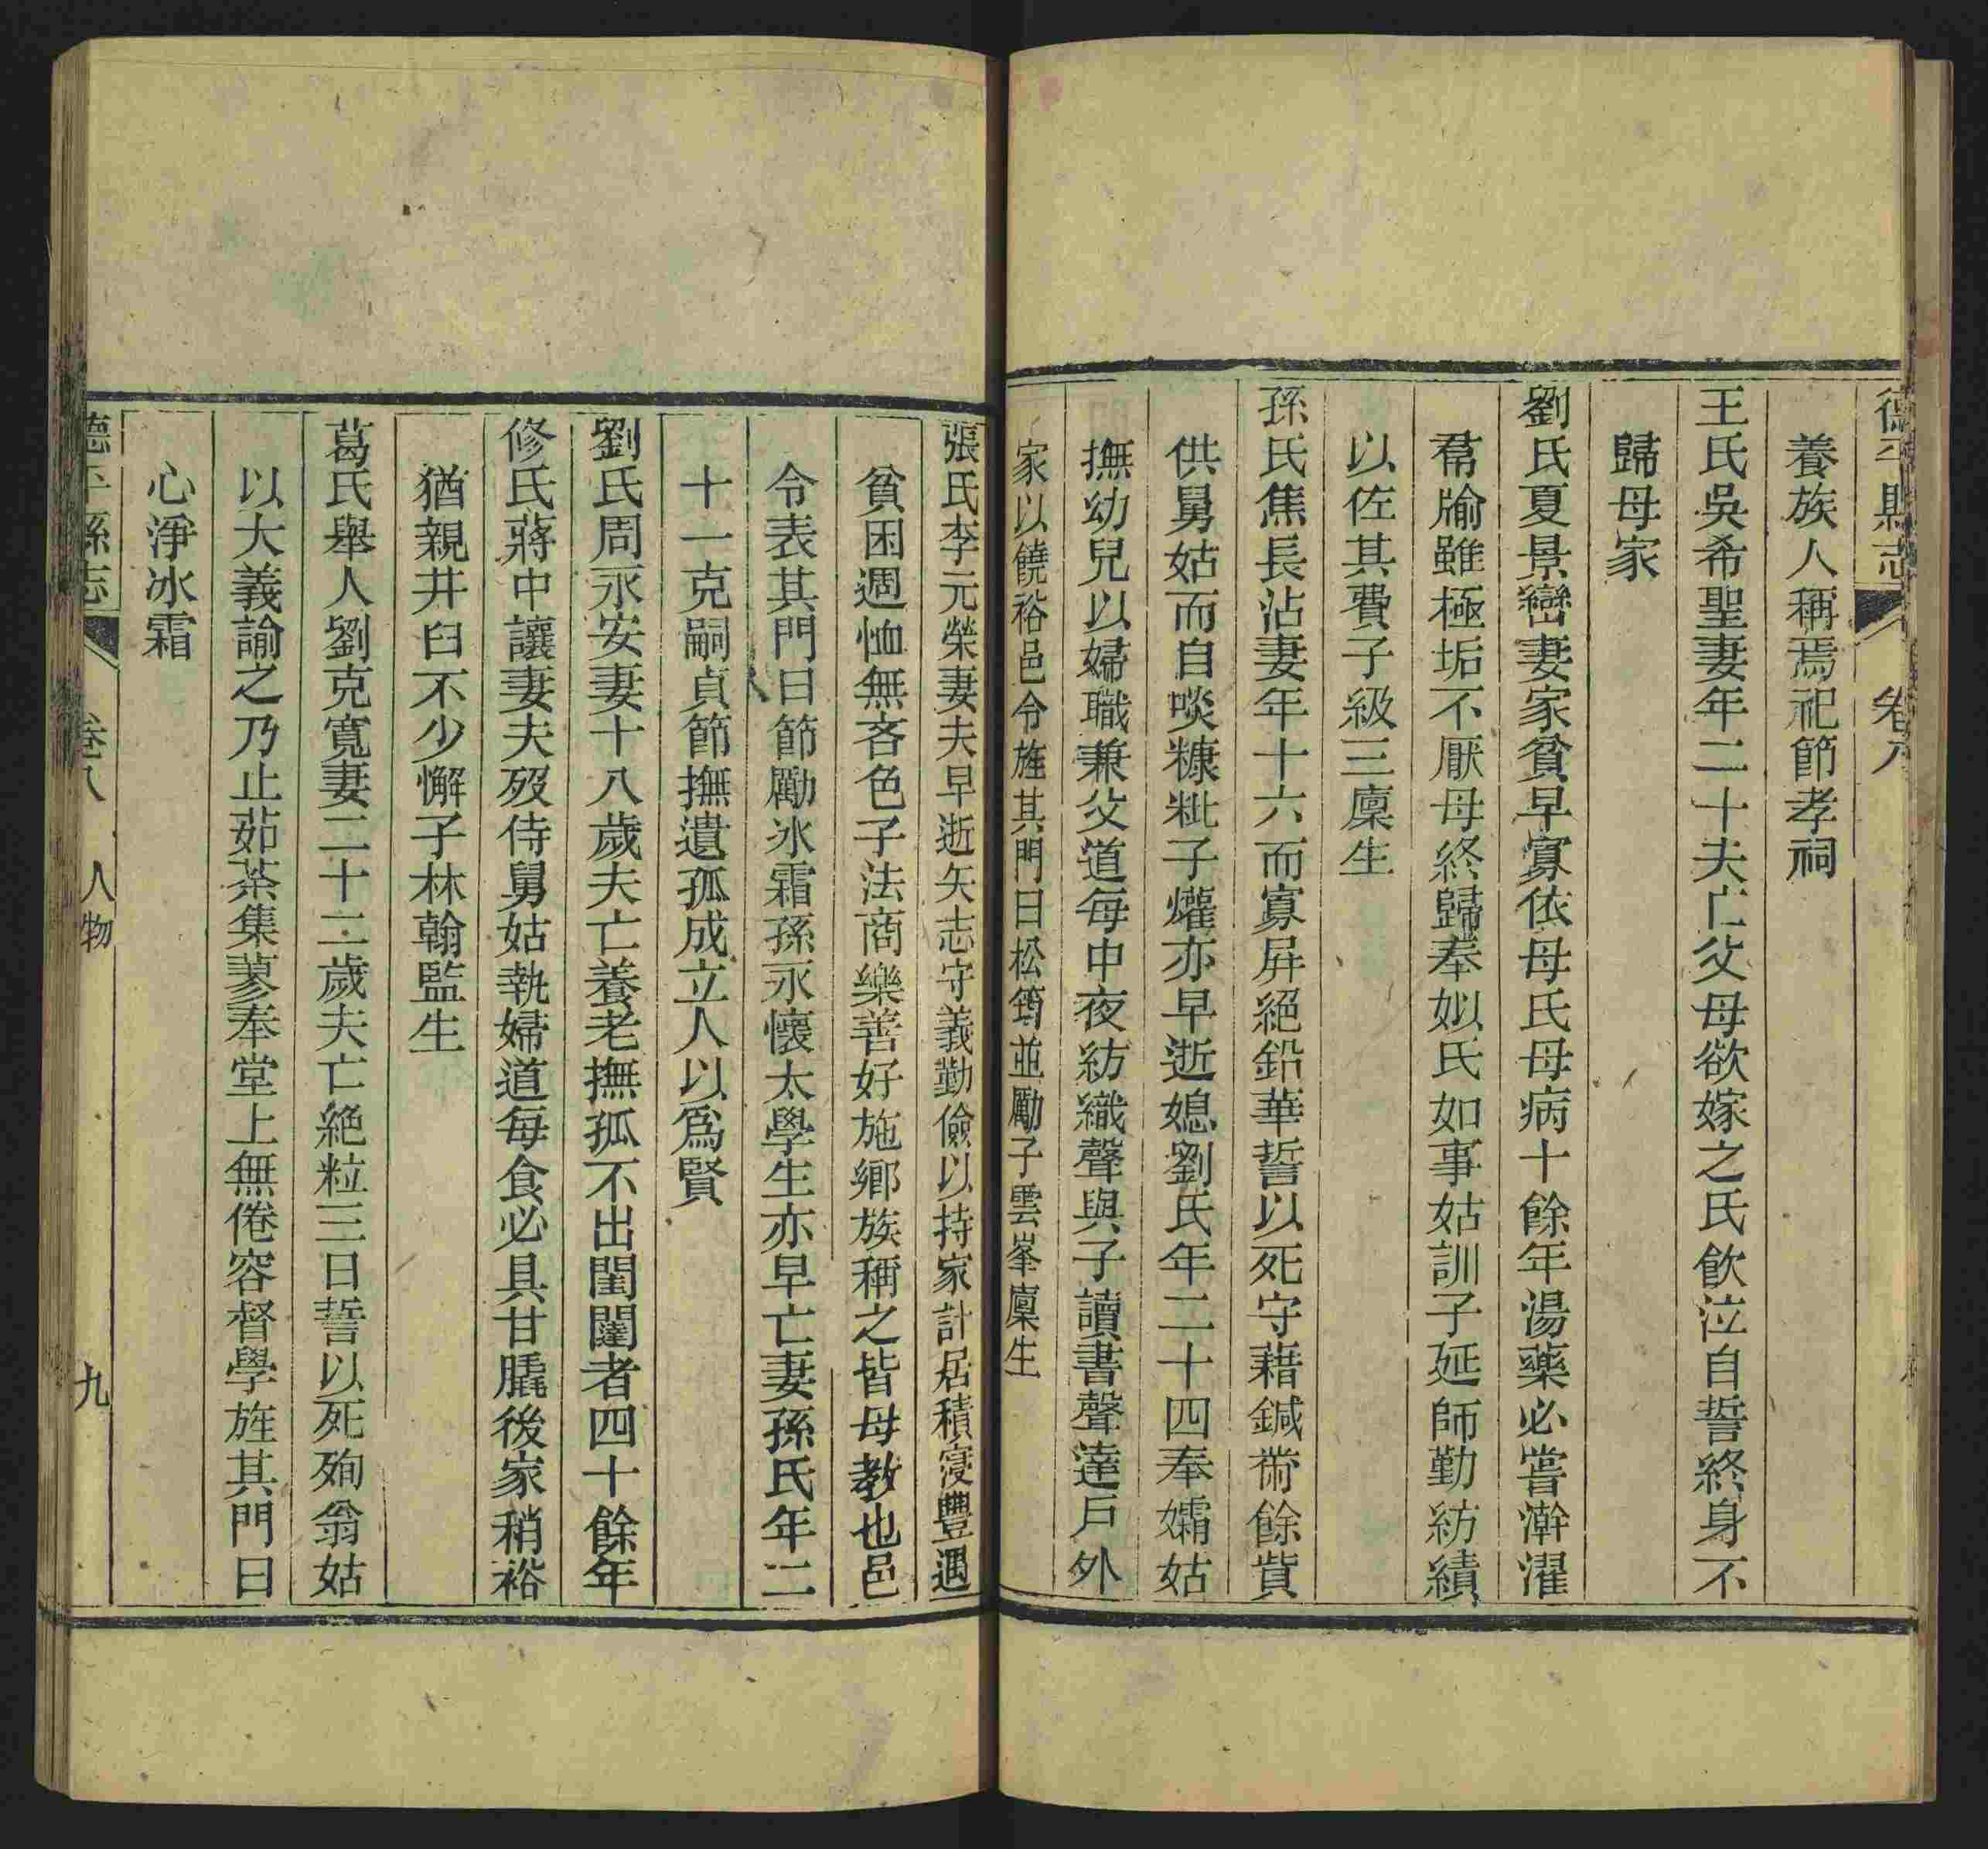 德平縣志 卷八
養族人稱焉祀節孝祠
王氏吳希聖妻年二十夫亡父母欲嫁之氏飲泣自誓終身不
歸母家
劉氏夏景巒妻家貧早寡依母氏母病十餘年湯藥必嘗澣濯
帬牏雖極垢不厭母終歸奉姒氏如事姑訓子延師勤紡績
以佐其費子級三廩生
孫氏焦長沾妻年十六而寡屏絕鉛華誓以死守藉鍼黹餘貲
供舅姑而自啖糠粃子爠亦早逝媳劉氏年二十四奉孀姑
撫幼兒以婦職兼父道每中夜紡織聲與子讀書聲達戶外
家以饒裕邑令旌其門曰松筠並勵子雲峯廩生
張氏李元榮妻夫早逝矢志守義勤儉以持家計居積寖豐遇
貧困週恤無吝色子法商樂善好施鄉族稱之皆母教也邑
令表其門曰節勵冰霜孫永懷太學生亦早亡妻孫氏年二
十一克嗣貞節撫遺孤成立人以爲賢
劉氏周永安妻十八歲夫亡養老撫孤不出閨闥者四十餘年
修氏蔣中讓妻夫歿侍舅姑執婦道每食必具甘膬後家稍裕
猶親井臼不少懈子林翰監生
葛氏舉人劉克寬妻二十二歲夫亡絕粒三日誓以死殉翁姑
以大義諭之乃止茹荼集蓼奉堂上無倦容督學旌其門曰
心淨冰霜
德平縣志 卷八 人物 九